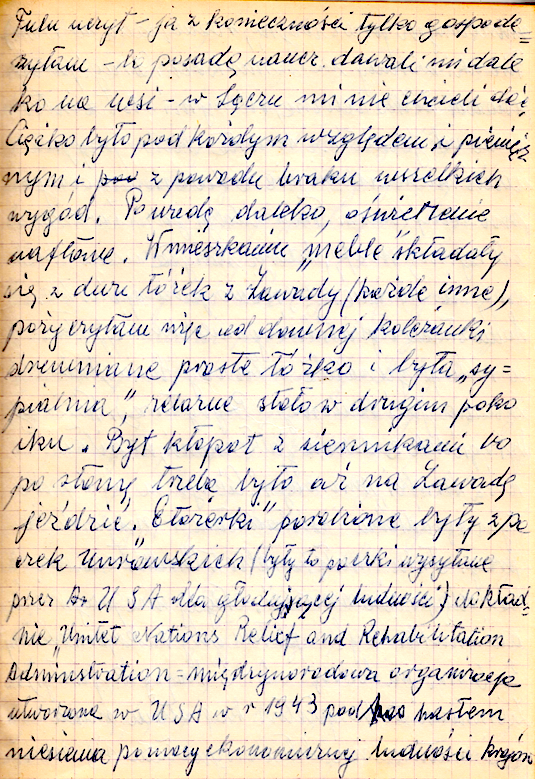 uczył - ja z konieczności tylko gospoda=
rzyłam - bo posadę naucz. dawali mi dale
ko na wsi - w Sączu mi nie chcieli dać,
Ciężko było pod każdym względem i pienięż
nym i z powodu braku wszelkich
wygód. Po wodę daleko, oświetlenie
naftowe. W mieszkaniu „meble" składały
się z dwu łóżek z Zawady (każde inne),
pożyczyłam więc od dawnej koleżanki
drewniane proste łóżko i była „sy=
pialnia", stołów w drugim poko
iku. Był kłopot z siennikami bo
po słomę trzeba było aż na Zawadę
jeździć. porobione były z pa
czek Unrowskich (były to paczki wysyłane
przez A. U S A dla głodującej ludności) dokład=
nie „Unitet Nations Relief and Rehabilitation
Adminstration = międzynarodowa organizacja
utworzona w USA w r 1943 pod hasłem
niesienia pomocy ekonomicznej ludności krajów